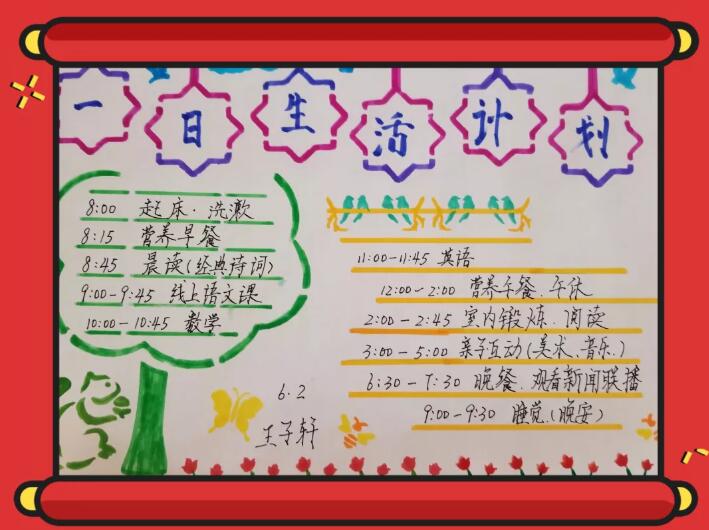 一日生活计划
8:00 起床·洗漱
8:15 营养早餐
8:45 晨读(经典诗词)
9:00-9:45 线上语文课
10:00-10:45 数学
11:00-11:45 英语
12:00-2:00 营养午餐、午休
2:00-2:45 室内锻炼、阅读
3:00-5:00 亲子互动(美术、音乐.)
6:30-7:30 晚餐、观看新闻联播
9:00-9:30 睡觉.(晚安)
6.2
王子轩